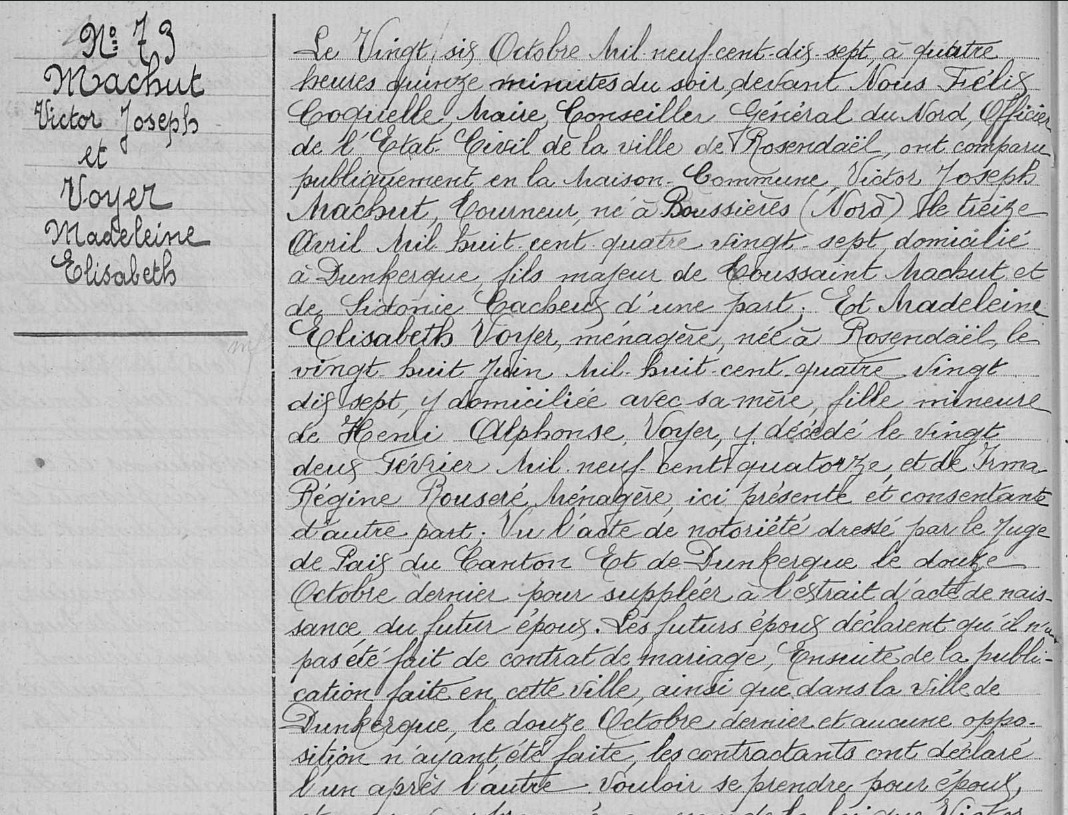 No 73
Machut
Victor Joseph
et
Voyer
Madeleine
Elisabeth
Le Vingt six Octobre Mil neuf cent dix-sept à quatre
heures quinze minutes du soir, devant Nous Félix
Coquelle, Maire, Conseiller Général du Nord, Officier
de l'Etat-Civil de la ville de Rosendaël, ont comparu
publiquement en la Maison-Commune, Victor Joseph
Machut, Tourneur, né à Boussières (Nord) le treize
Avril Mil huit cent quatre vingt-sept, domicilié
à Dunkerque fils majeur de Toussaint Machut et
de Sidonie Cacheux d'une part; Et Madeleine
Elisabeth Voyer, ménagère, née à Rosendaël, le
vingt-huit Juin Mil-huit-cent-quatre vingt
dix sept, y domiciliée avec sa mère, fille mineure
de Henri Alphonse Voyer, y décédé le vingt
deux Février Mil neuf cent quatorze et de Irma
Régine Rouseré, Ménagère, ici présente et consentante
d'autre part. Vu l'acte de notoriété dressé par le Juge
de Paix du Canton Est de Dunkerque le douze
Octobre dernier pour suppléer à l'extrait d'acte de nais-
sance du futur époux. Les futurs époux déclarent qu'il n'a
pas été fait de contrat de mariage, Ensuite de la publi-
cation faite en cette ville, ainsi que dans la ville de
Dunkerque, le douze Octobre dernier et aucune oppo-
sition n'ayant été faite, les contractants ont déclaré
l'un après l'autre vouloir se prendre pour époux,
la loi que Victor